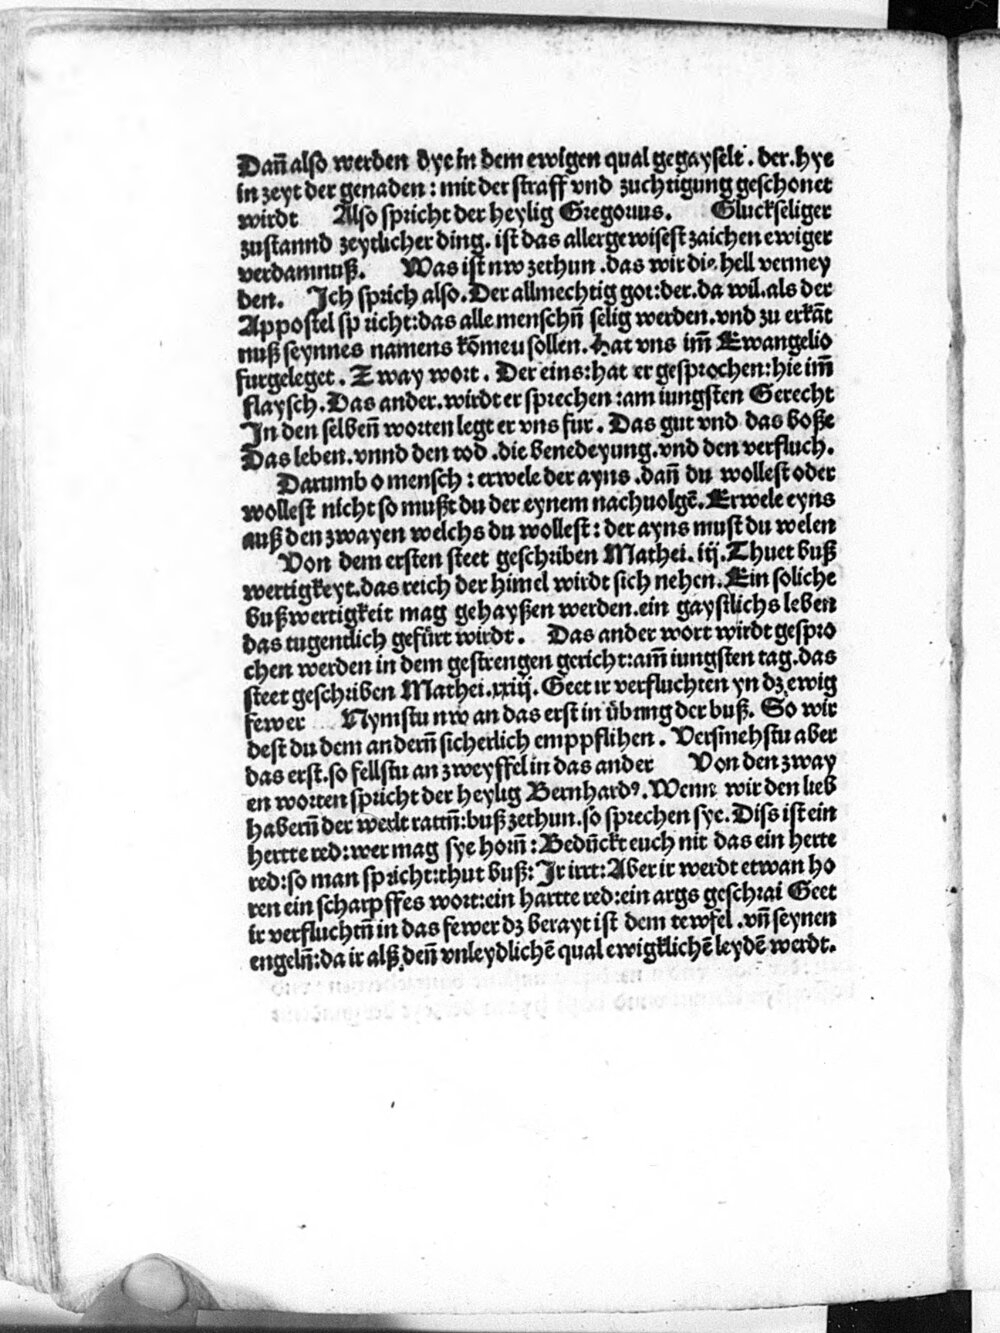 Dañ also werden dye in dem ewigen qual gegayselt . der . hye
in zeyt der genaden : mit der straff vnd zuchtigung geschonet
wirdt Also spricht der heylig Gregorius. Gluckseliger
zustannd zeytlicher ding. ist das allergewisest zaichen ewiger
verdamnuß. Was ist nw zethun . das wir die hell vermey
den. Ich sprich also. Der allmechtig got: der. da wil. als der
Appostel spricht: das alle menschñ selig werden. vnd zu erkãt
nuß seynnes namens kõmeu sollen. Hat vns im̃ Ewangelio
furgeleget . Zway wort . Der eins: hat er gesprochen: hie im̃
flaysch. Das ander. wirdt er sprechen : am iungsten Gerecht
In den selbeñ worten legt er vns fur . Das gut vnd das boße
Das leben. vnnd den tod . die benedeyung. vnd den verfluch.
Darumb o mensch : erwele der ayns . dañ du wollest oder
wollest nicht so mußt du der eynem nachuolgẽ. Erwele eyns
auß den zwayen welchs du wollest : der ayns must du welen
Von dem ersten steet geschriben Mathei. iij. Thuet buß
wertigkeyt. das reich der himel wirdt sich nehen. Ein soliche
bußwertigkeit mag gehayßen werden. ein gaystlichs leben
das tugentlich gefürt wirdt . Das ander wort wirdt gespro
chen werden in dem gestrengen gericht: am̃ iungsten tag. das
steet geschriben Mathei. xxiij. Geet ir verfluchten yn dz ewig
fewer Nymstu nw an das erst in übung der buß. So wir
dest du dem anderñ sicherlich emppflihen . Versmehstu aber
das erst. so fellstu an zweyffel in das ander Von den zway
en worten spricht der heylig Bernhardꝰ. Wenn wir den lieb
haberñ der werlt rattñ: buß zethun. so sprechen sye. Diss ist ein
hertte red: wer mag sye horñ : Bedũckt euch nit das ein herte
red: so man spricht: thut buß: Ir irrt: Aber ir werdt etwan ho
ren ein scharpffes wort: ein hartte red: ein args geschrai Geet
ir verfluchtñ in das fewer dz berayt ist dem tewfel . vñ seynen
engelñ: da ir alß deñ vnleydlichẽ qual ewigklichẽ leydẽ werdt.